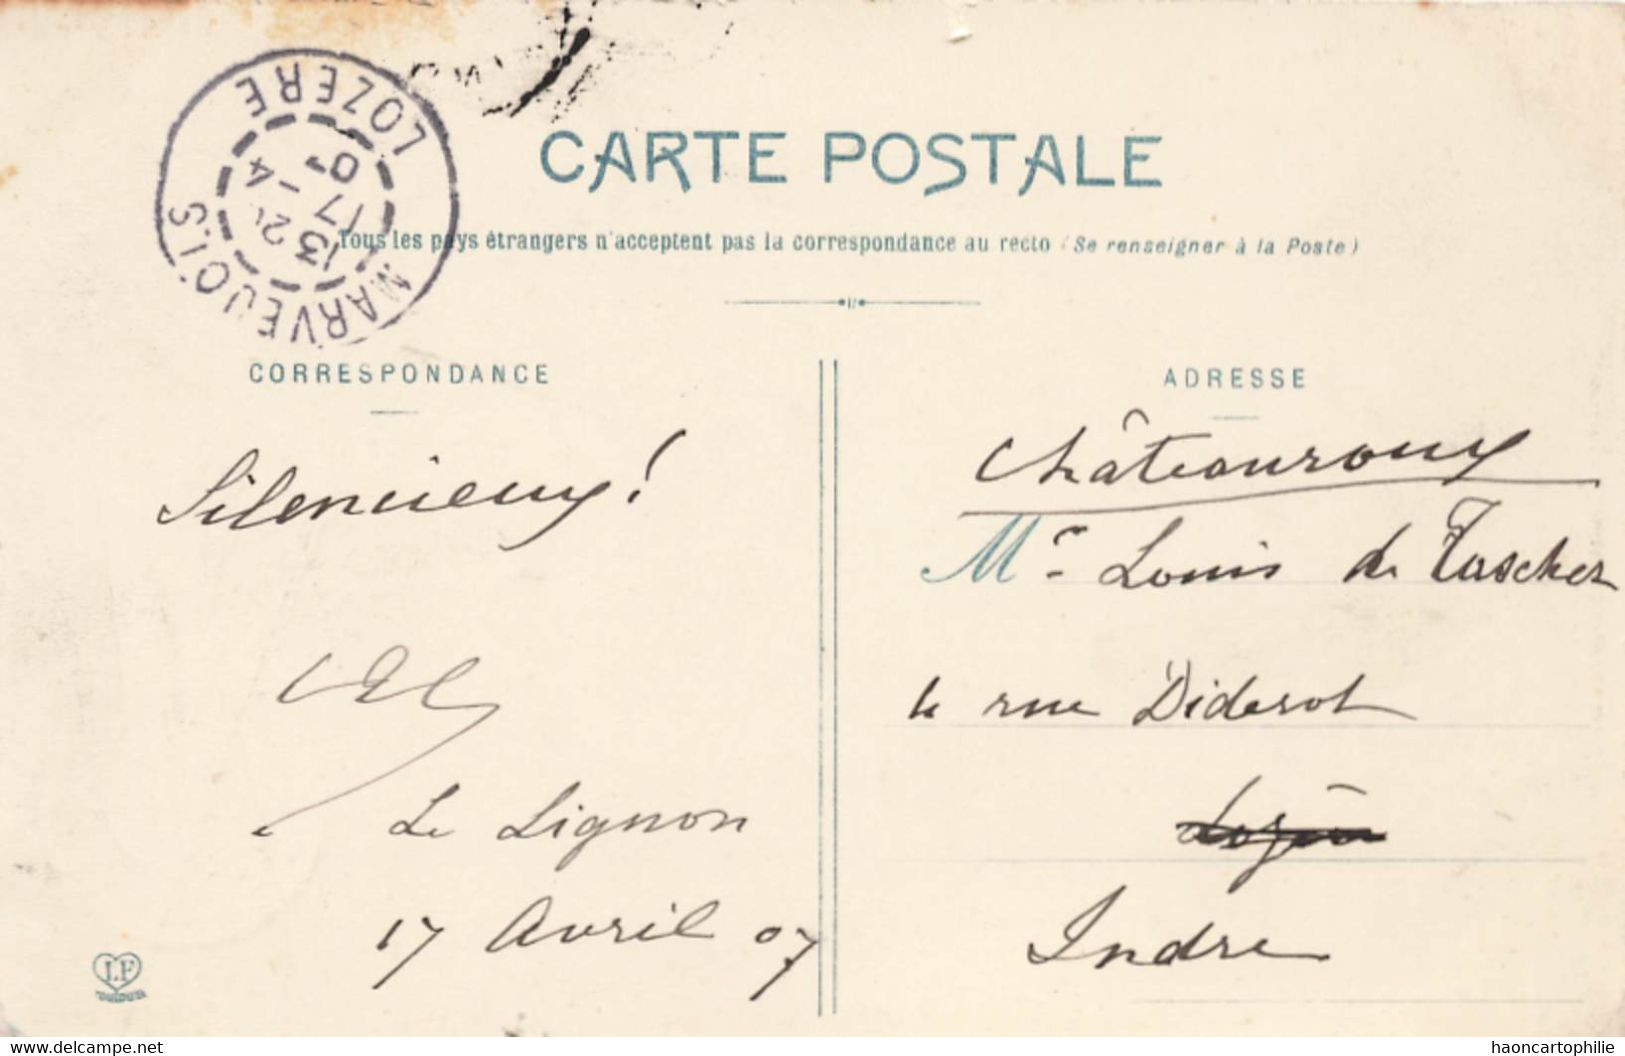 LOZERE
MARVEJOLS
13
17 - 4
CARTE POSTALE
Tous les pays étrangers n'acceptent pas la correspondance au recto (Se renseigner à la Poste)
CORRESPONDANCE
Silencieux !
Le Lignon
17 Avril 07
J.F
TOULOUSE
ADRESSE
Châteauroux
Mr Louis de Tascher
4 rue Diderot
Indre
www.delcampe.net
haoncartophilie